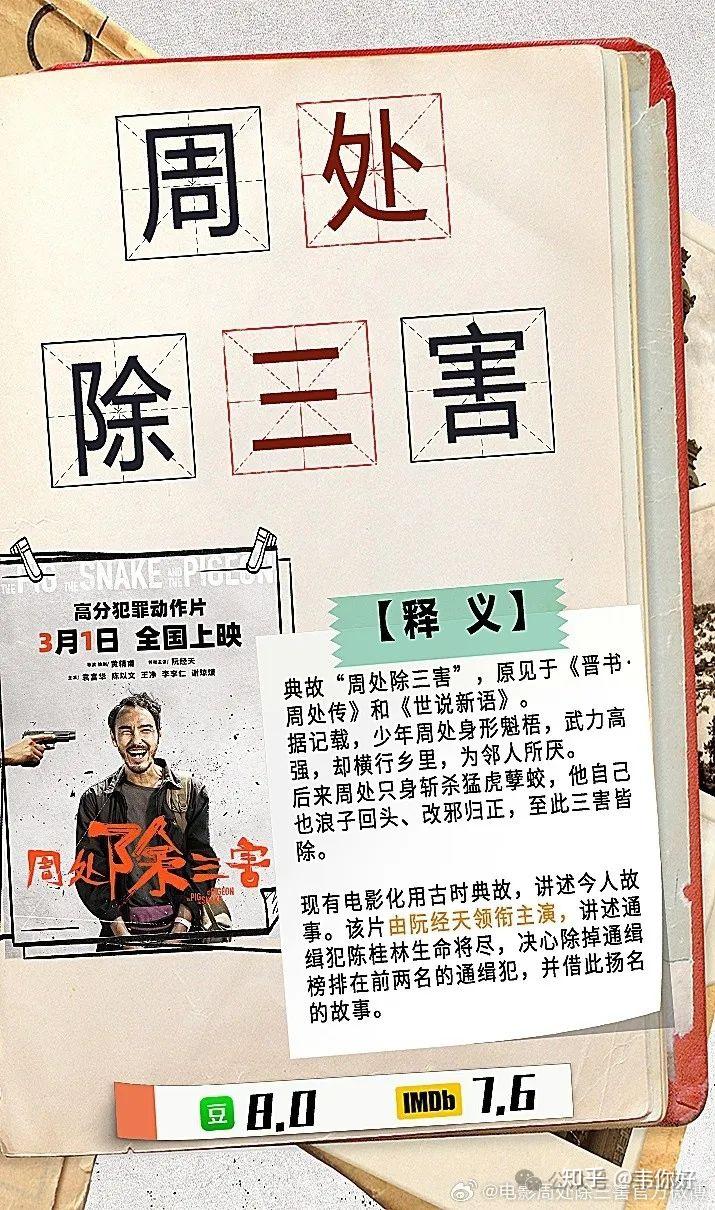 周处
除三害
THE PIG THE SNAKE AND THE PIGEON
高分犯罪动作片
3月1日 全国上映
导演 编剧/黄精甫 领衔主演/阮经天
主演/袁富华 陈以文 王净 李李仁 谢琼煖
周处除三害
【释 义】
典故“周处除三害”，原见于《晋书·
周处传》和《世说新语》。
据记载，少年周处身形魁梧，武力高
强，却横行乡里，为邻人所厌。
后来周处只身斩杀猛虎孽蛟，他自己
也浪子回头、改邪归正，至此三害皆
除。
现有电影化用古时典故，讲述今人故
事。该片由阮经天领衔主演，讲述通
缉犯陈桂林生命将尽，决心除掉通缉
榜排在前两名的通缉犯，并借此扬名
的故事。
豆 8.0 IMDb 7.6
知乎 @韦你好
@电影周处除三害官方微博